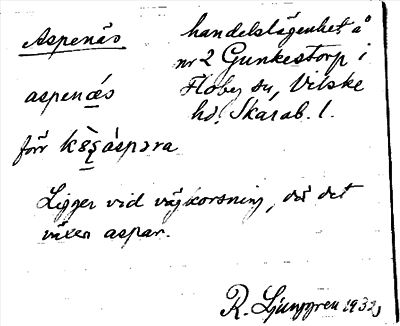 Aspenäs
handelslägenhet å
nr 2 Gunkestorp i
Floby sn, Vilske
hd. Skarab. l.
aspenǽs
förr
áspəra
Ligger vid vägkorsning, där det
växer aspar.
R. Ljunggren 1932